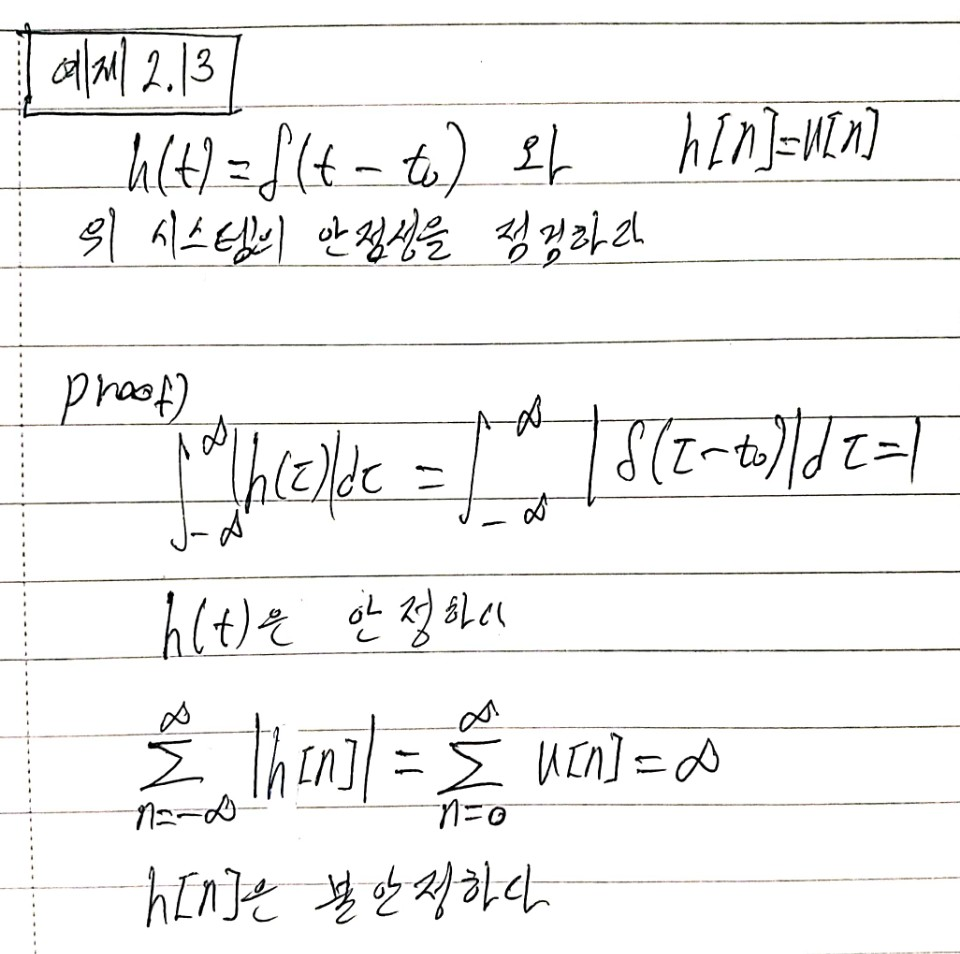 예제 2.13
h(t) = δ(t - t₀) 와 h[n]=u[n]
의 시스템의 안정성을 점검하라
proof)
∫_{-∞}^{∞} |h(τ)|dτ = ∫_{-∞}^{-∞} |δ(τ-t₀)|dτ=1
h(t)은 안정하다
∑_{n=-∞}^{∞} |h[n]| = ∑_{n=0}^{∞} u[n] = ∞
h[n]은 불안정하다